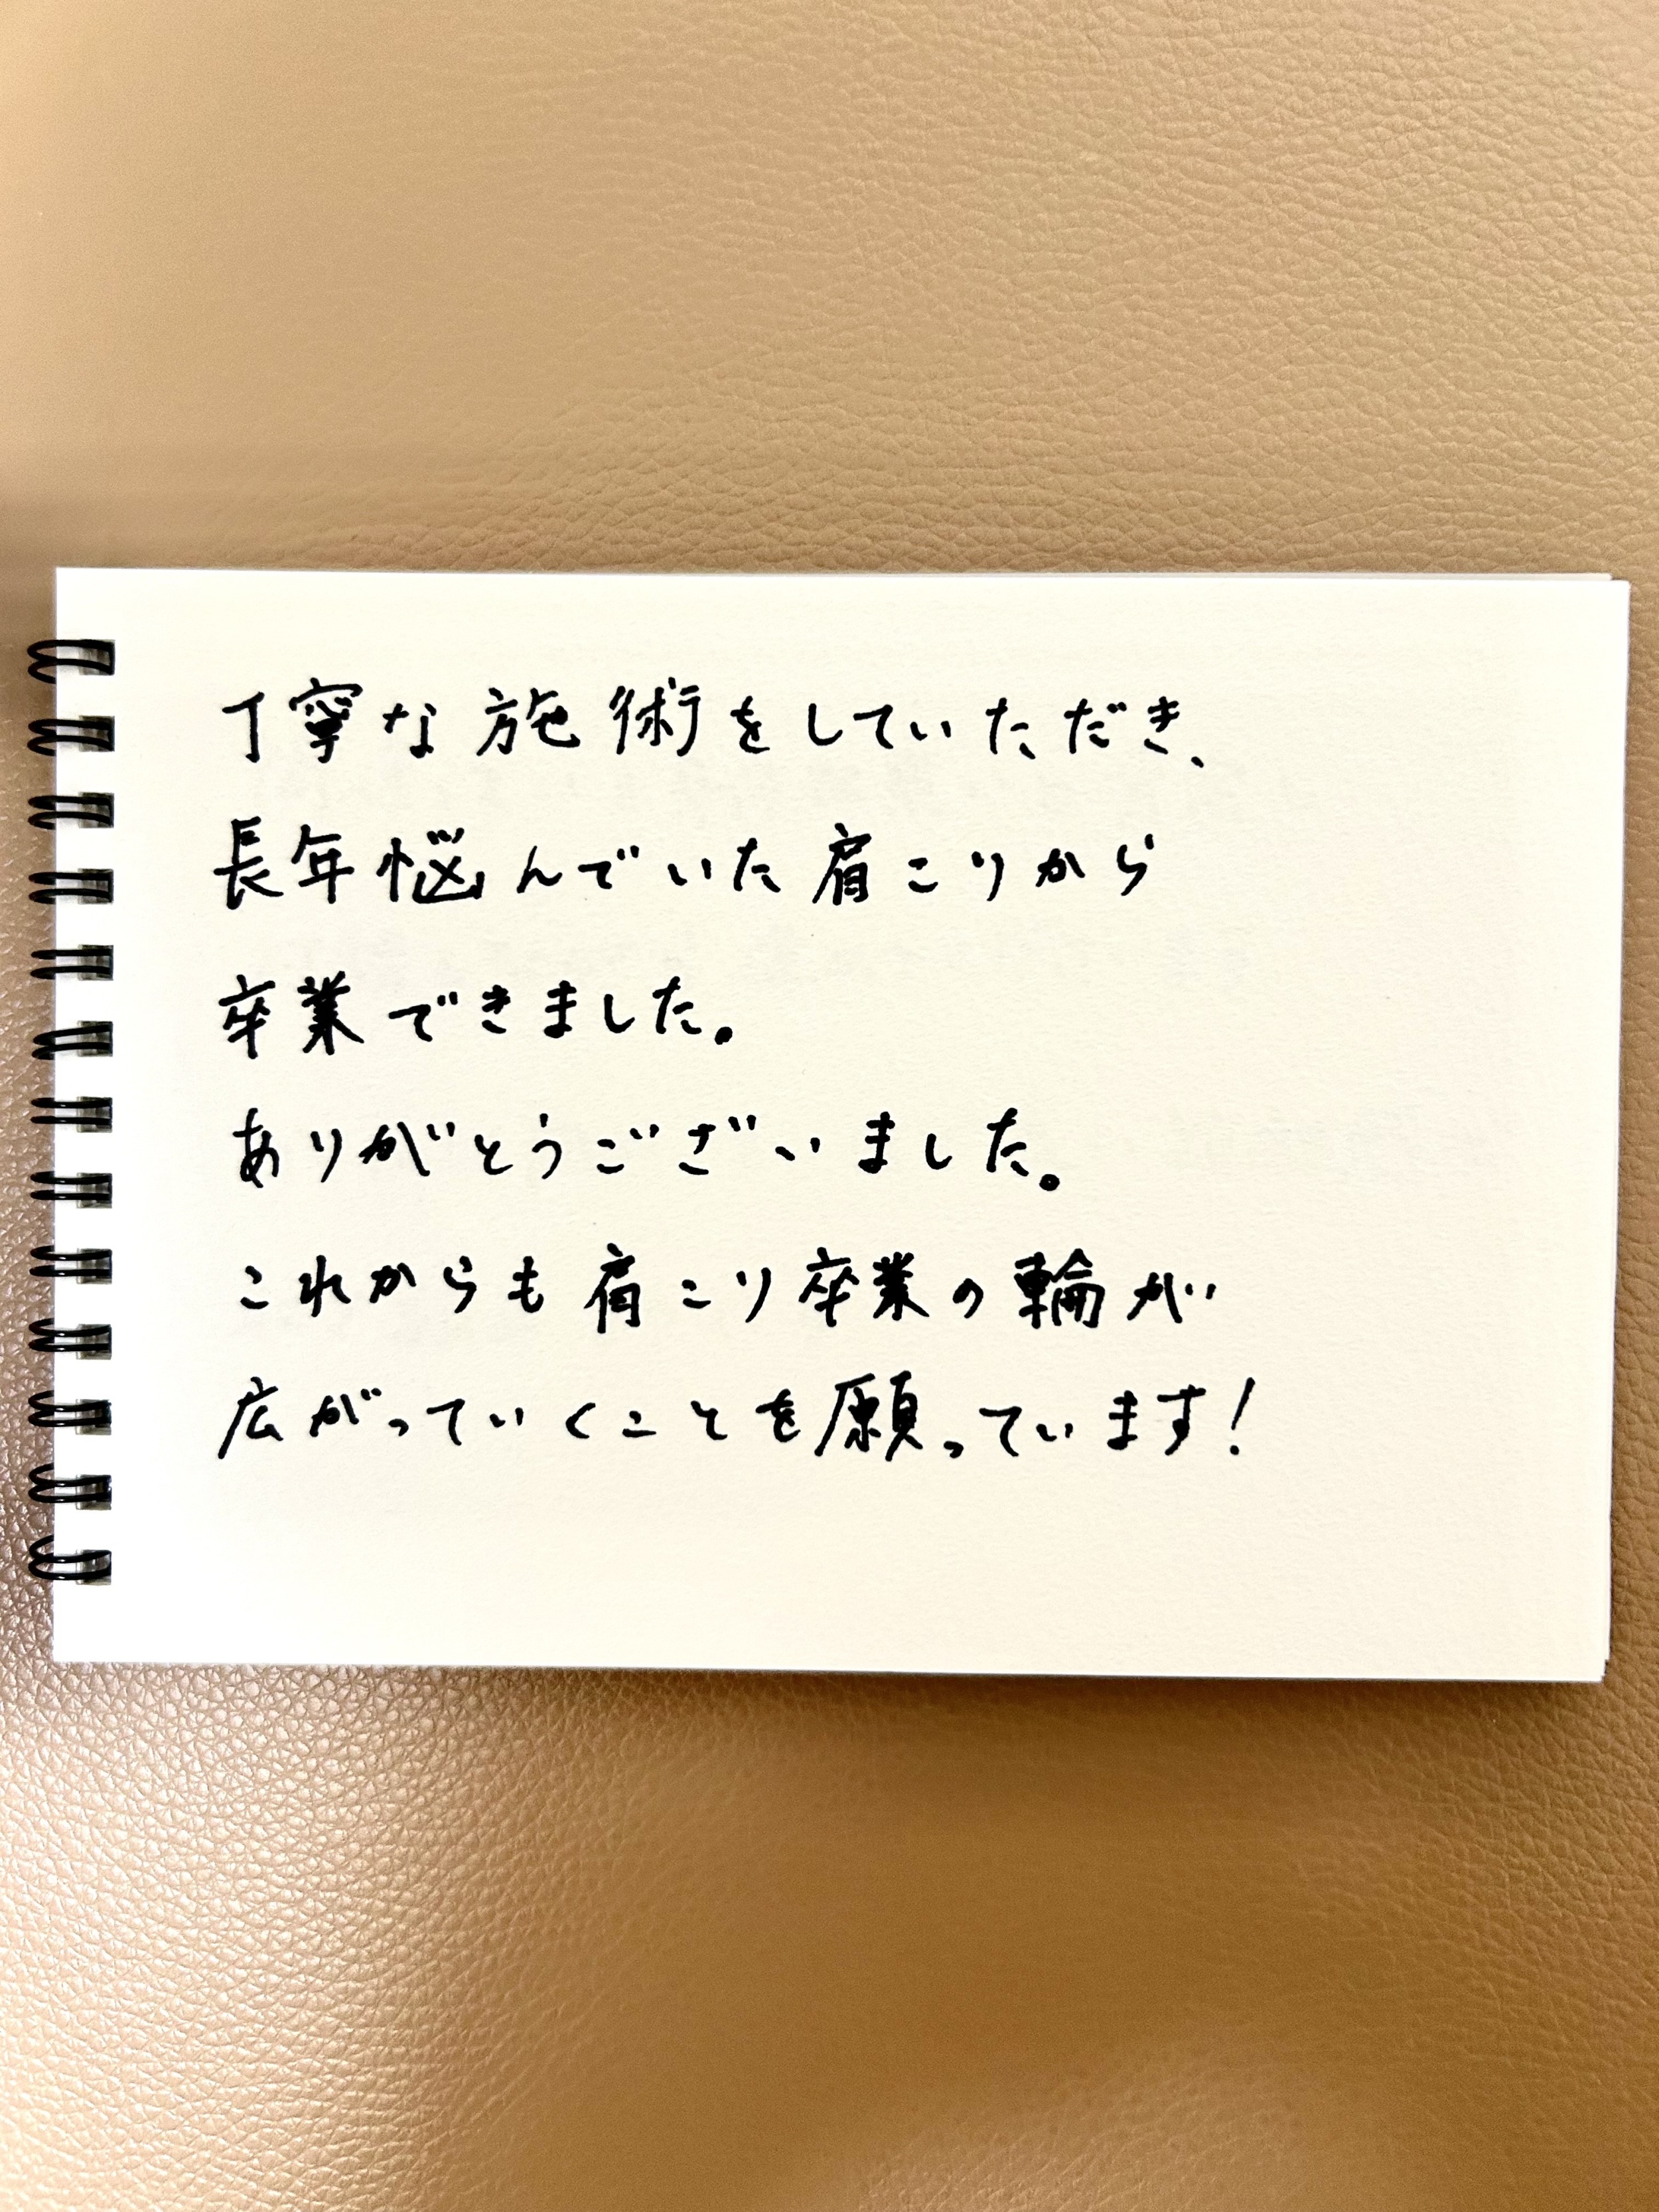 丁寧な施術をしていただき、
長年悩んでいた肩こりから
卒業できました。
ありがとうございました。
これからも肩こり卒業の輪が
広がっていくことを願っています!